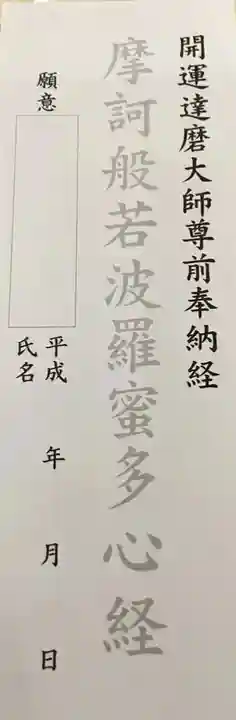 開運達磨大師尊前奉納経
摩訶般若波羅蜜多心経
願意
平成　年　月　日
氏名